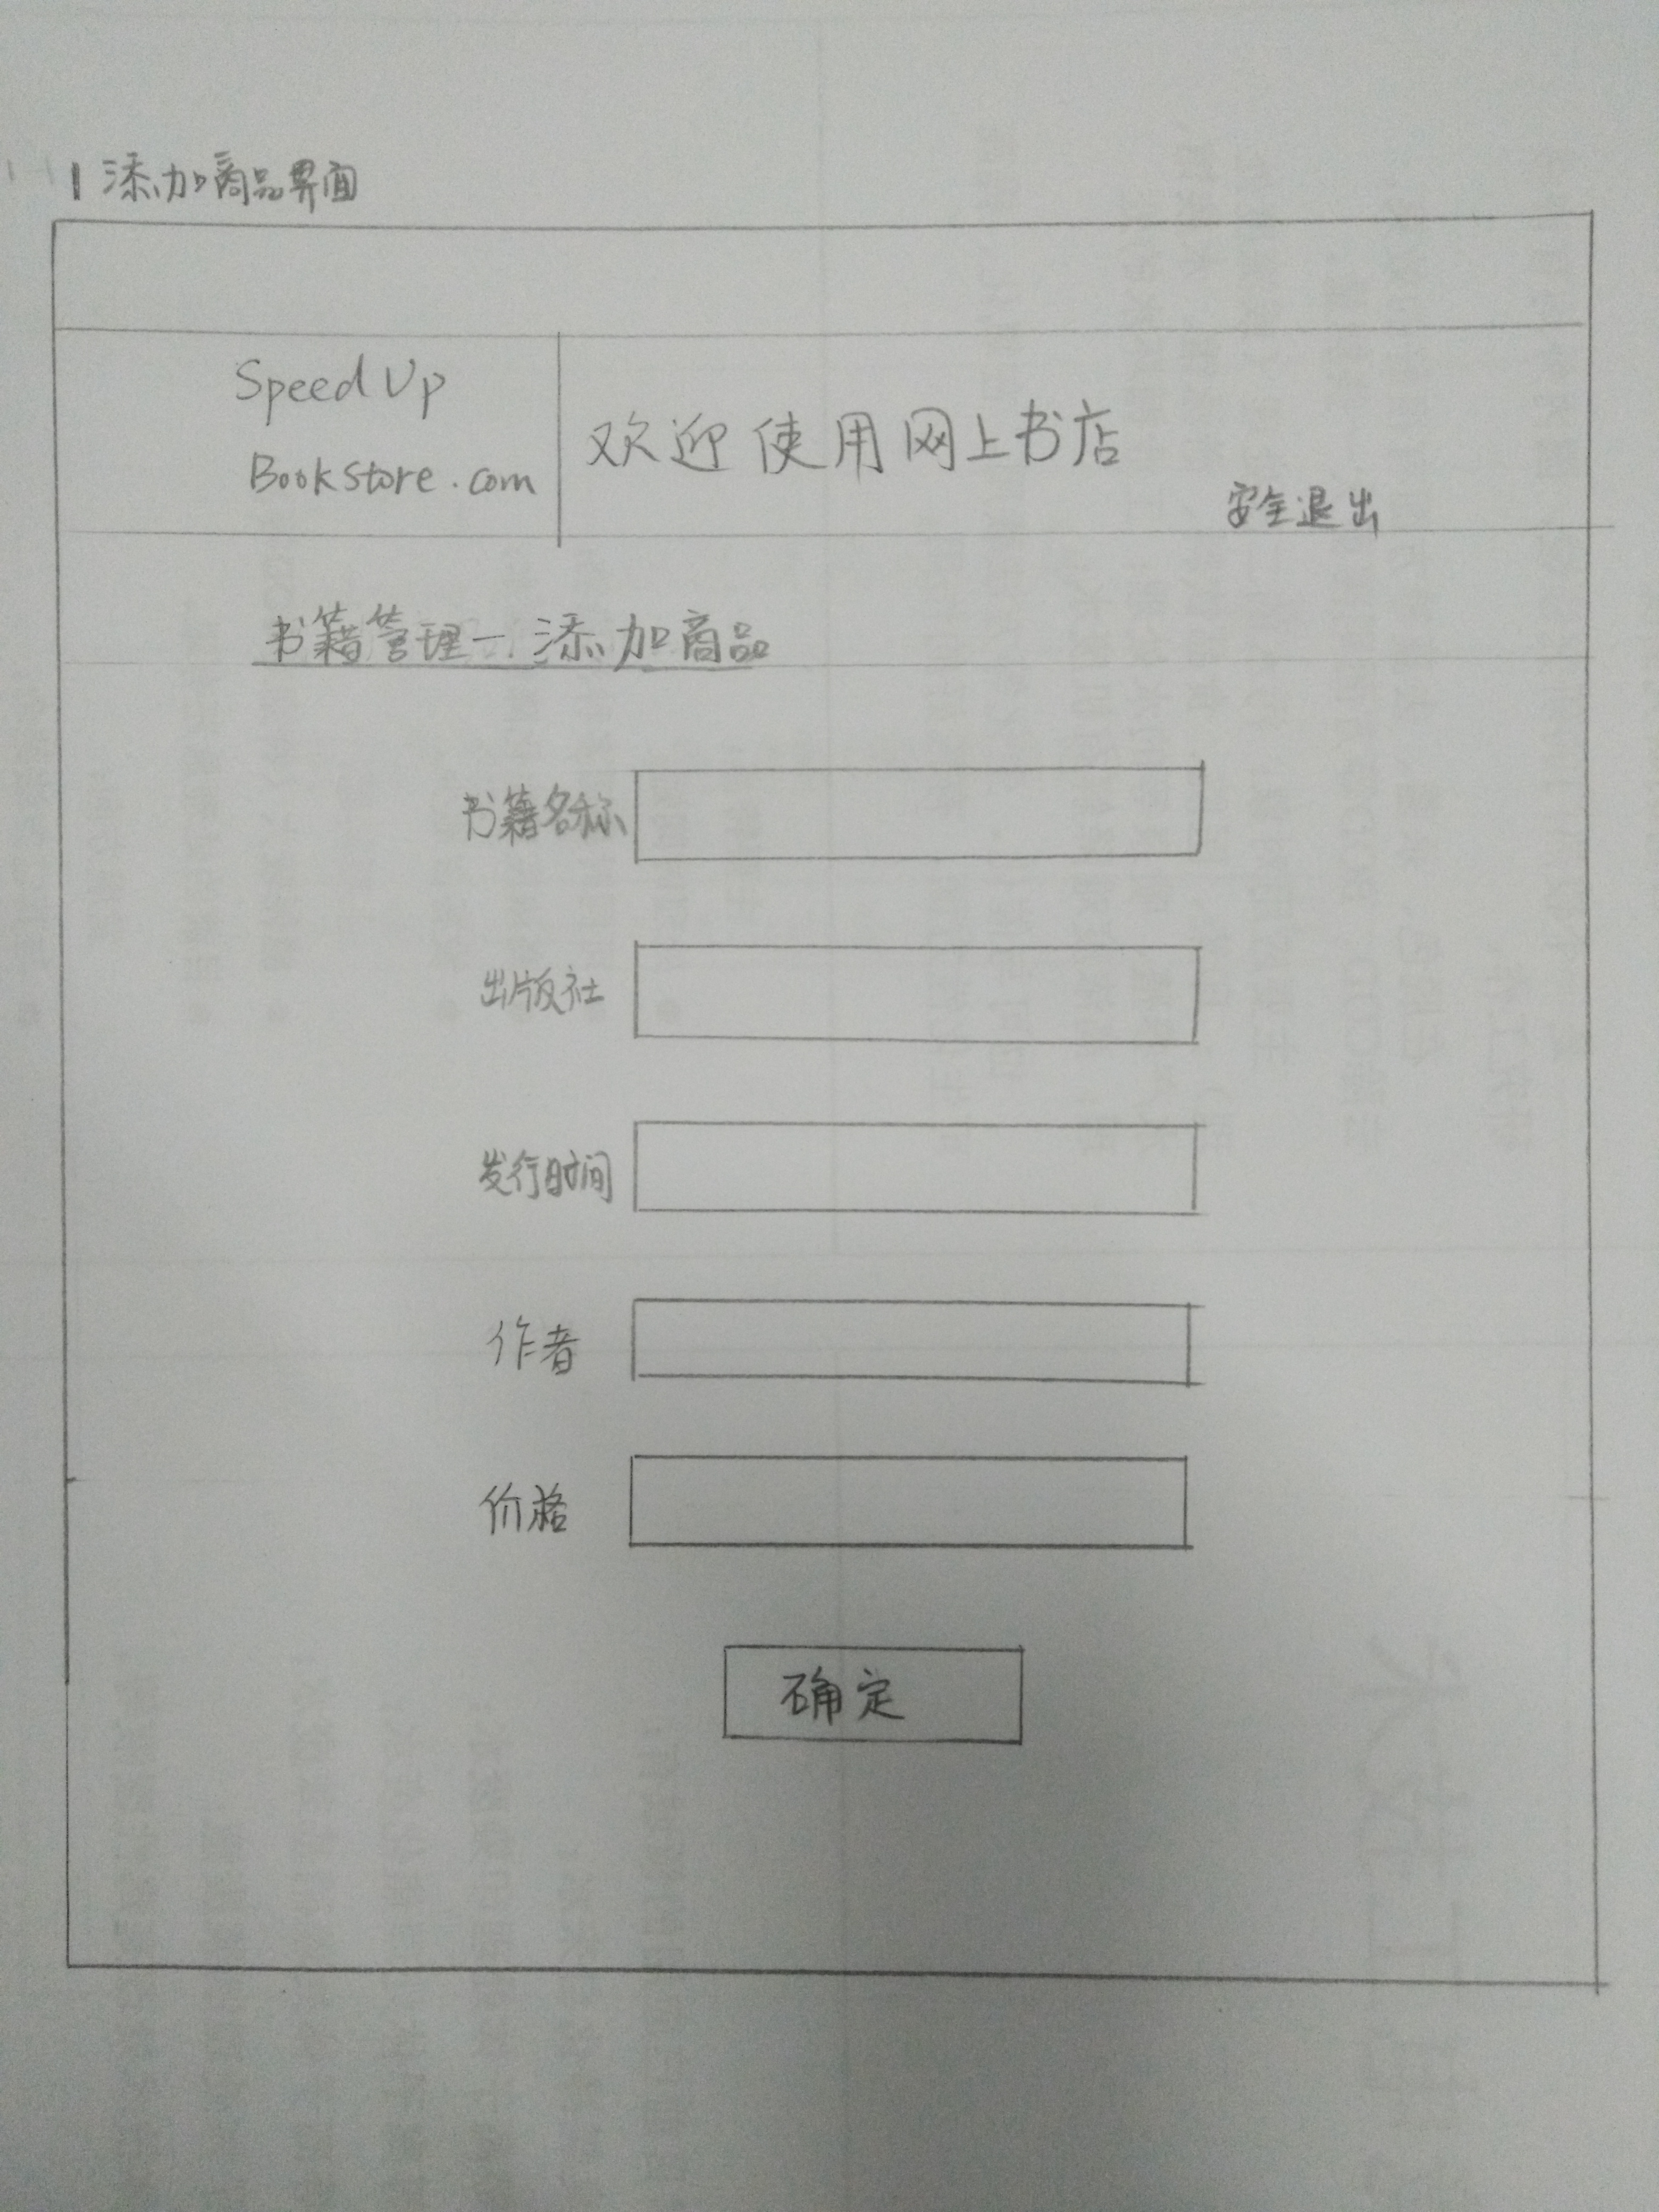 1 添加商品界面
Speed Up
Bookstore.com
欢迎使用网上书店
安全退出
书籍管理—添加商品
书籍名称
出版社
发行时间
作者
价格
确定